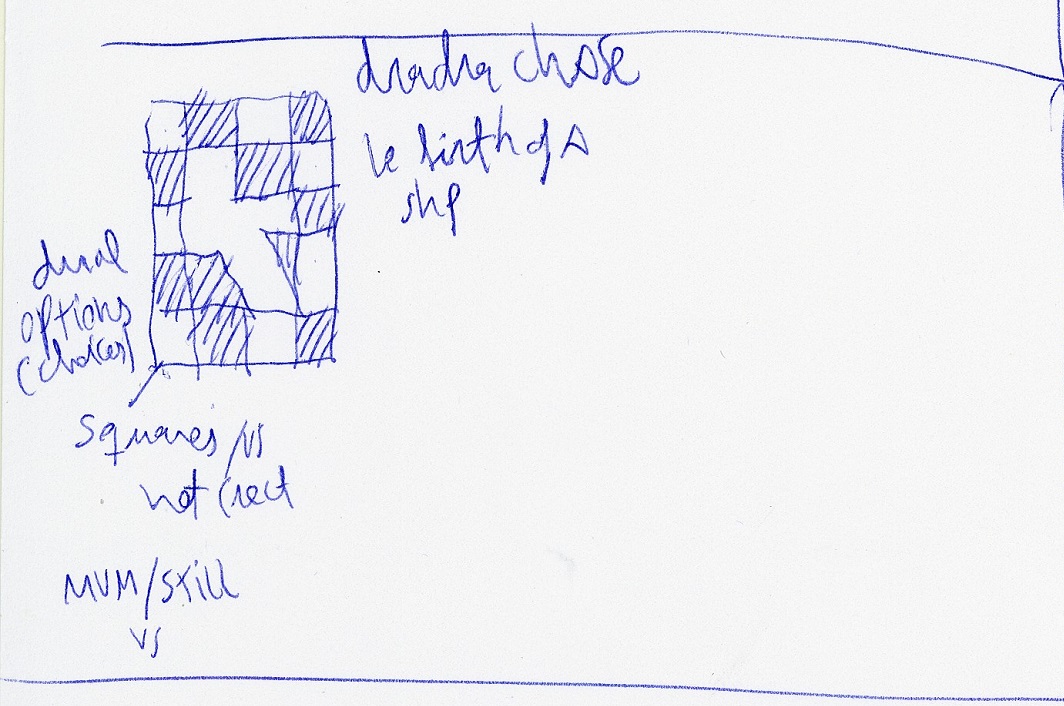 chose
birth of a
shp
dual
options
(choices)
squares/vs
not (rect
MVM/still
vs